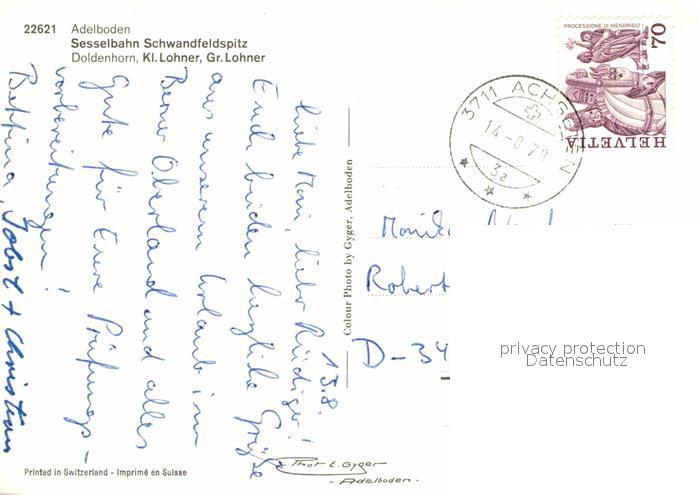 22621 Adelboden
Sesselbahn Schwandfeldspitz
Doldenhorn, Kl. Lohner, Gr. Lohner
13.8.
Liebe Moni, lieber Rüdiger!
Euch beiden herzliche Grüße
aus unserem Urlaub im
Berner Oberland und alles
Gute für Eure Prüfungs-
vorbereitungen!
Bettina, Jobst + Christian
Printed in Switzerland - Imprimé en Suisse
Colour Photo by Gyger, Adelboden
Phot E. Gyger
- Adelboden.
PROCESSIONE DI MENDRISIO
70
HELVETIA
3711 ACHSETEN
14-8 79
3a
Robert
D-34
privacy protection
Datenschutz